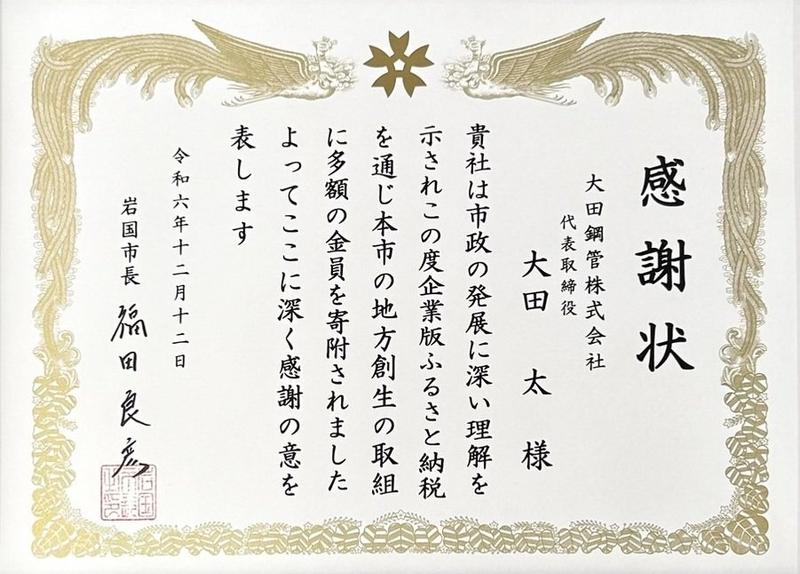 感謝状
大田鋼管株式会社
代表取締役
大田 太 様
貴社は市政の発展に深い理解を
示されこの度企業版ふるさと納税
を通じ本市の地方創生の取組
に多額の金員を寄附されました
よってここに深く感謝の意を
表します
令和六年十二月十二日
岩国市長 福田良彦